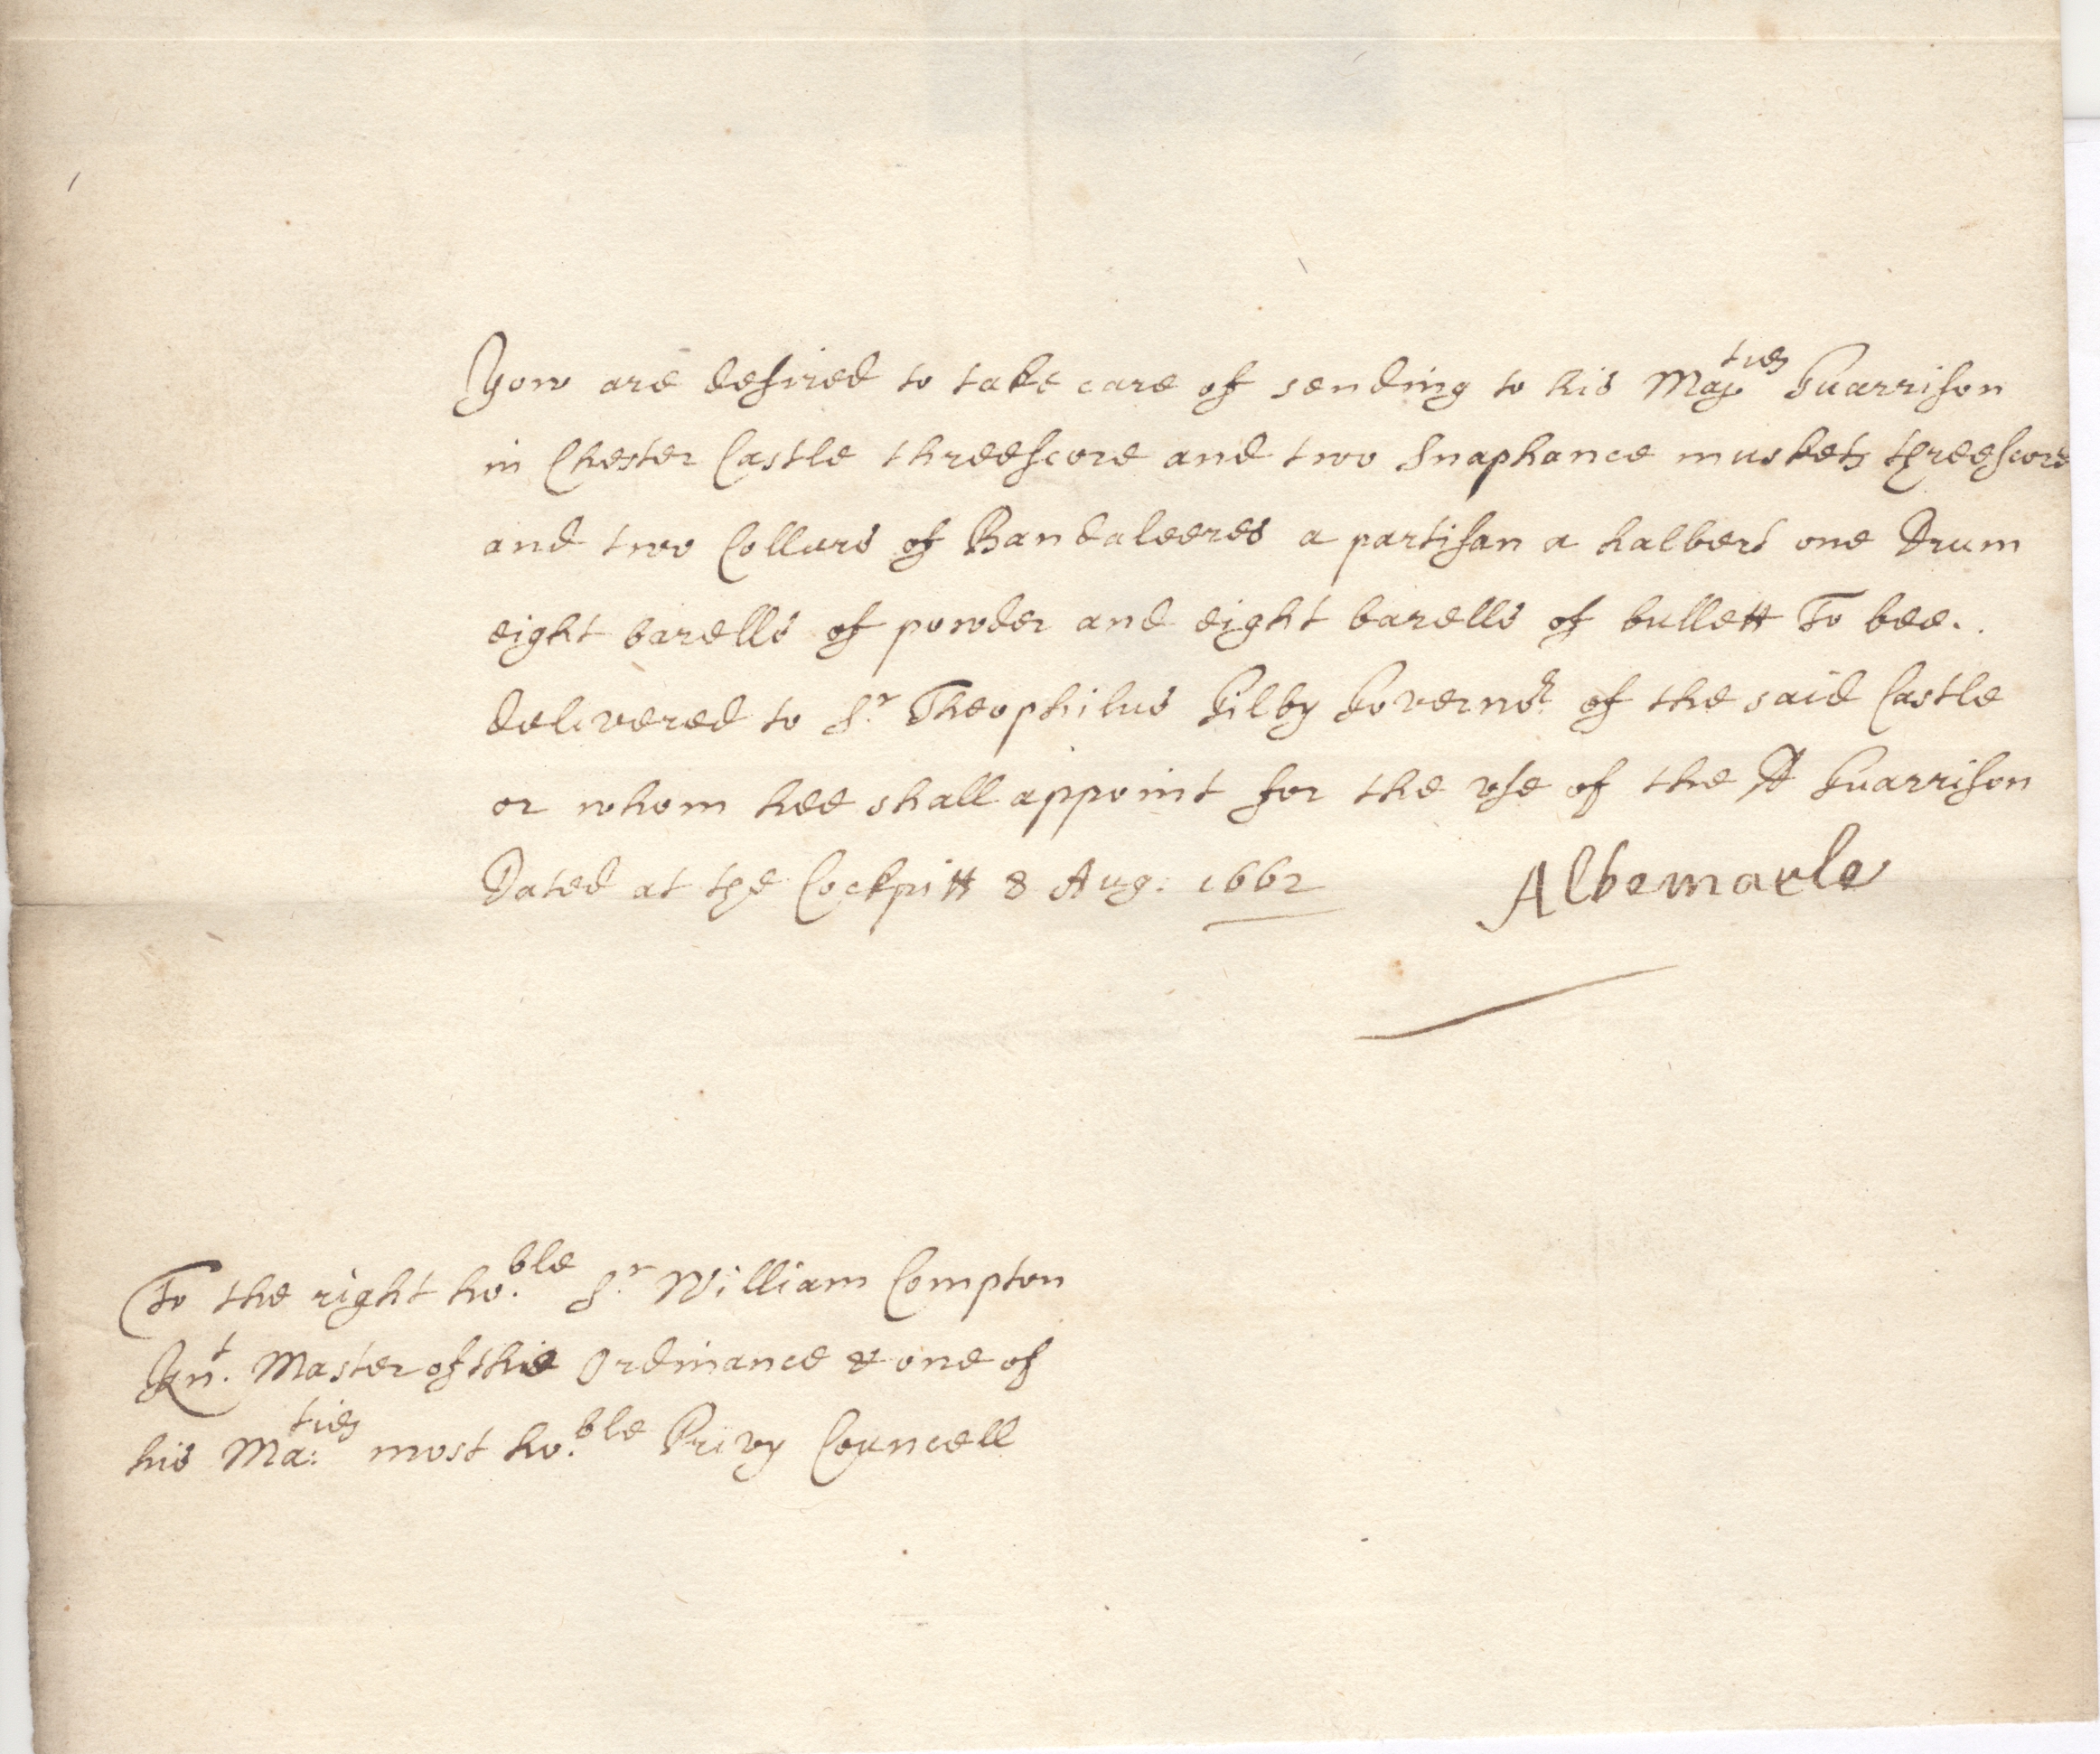 Yow are desired to take care of sending to his Maj<sup>ties</sup> Guarrison
in Chester Castle threescore and two Snaphance muskets threescore
and two Collars of Bandaleeres a partisan a halberd one Drum
eight barells of powder and eight barells of bullett To bee.
delivered to S<sup>r</sup>. Theophilus Gilby Govern<sup>r</sup>. of the said Castle
or whom hee shall appoint for the vse of the sd Guarrison
Dated at the Cockpitt 8 Aug: 1662 Albemarle
To the right ho.<sup>ble</sup> S<sup>r</sup>. William Compton
Kn<sup>t</sup>. Master of the Ordinance & one of
his Ma:<sup>ties</sup> most ho.<sup>ble</sup> Privy Councell